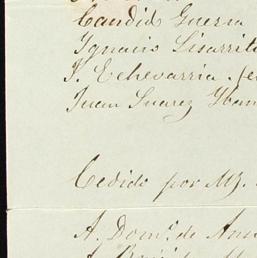 Candido Guerra
Ignacio Lisarrit
J. Echevarria
Juan Suarez
Cedido por M.
A. Dom.º de